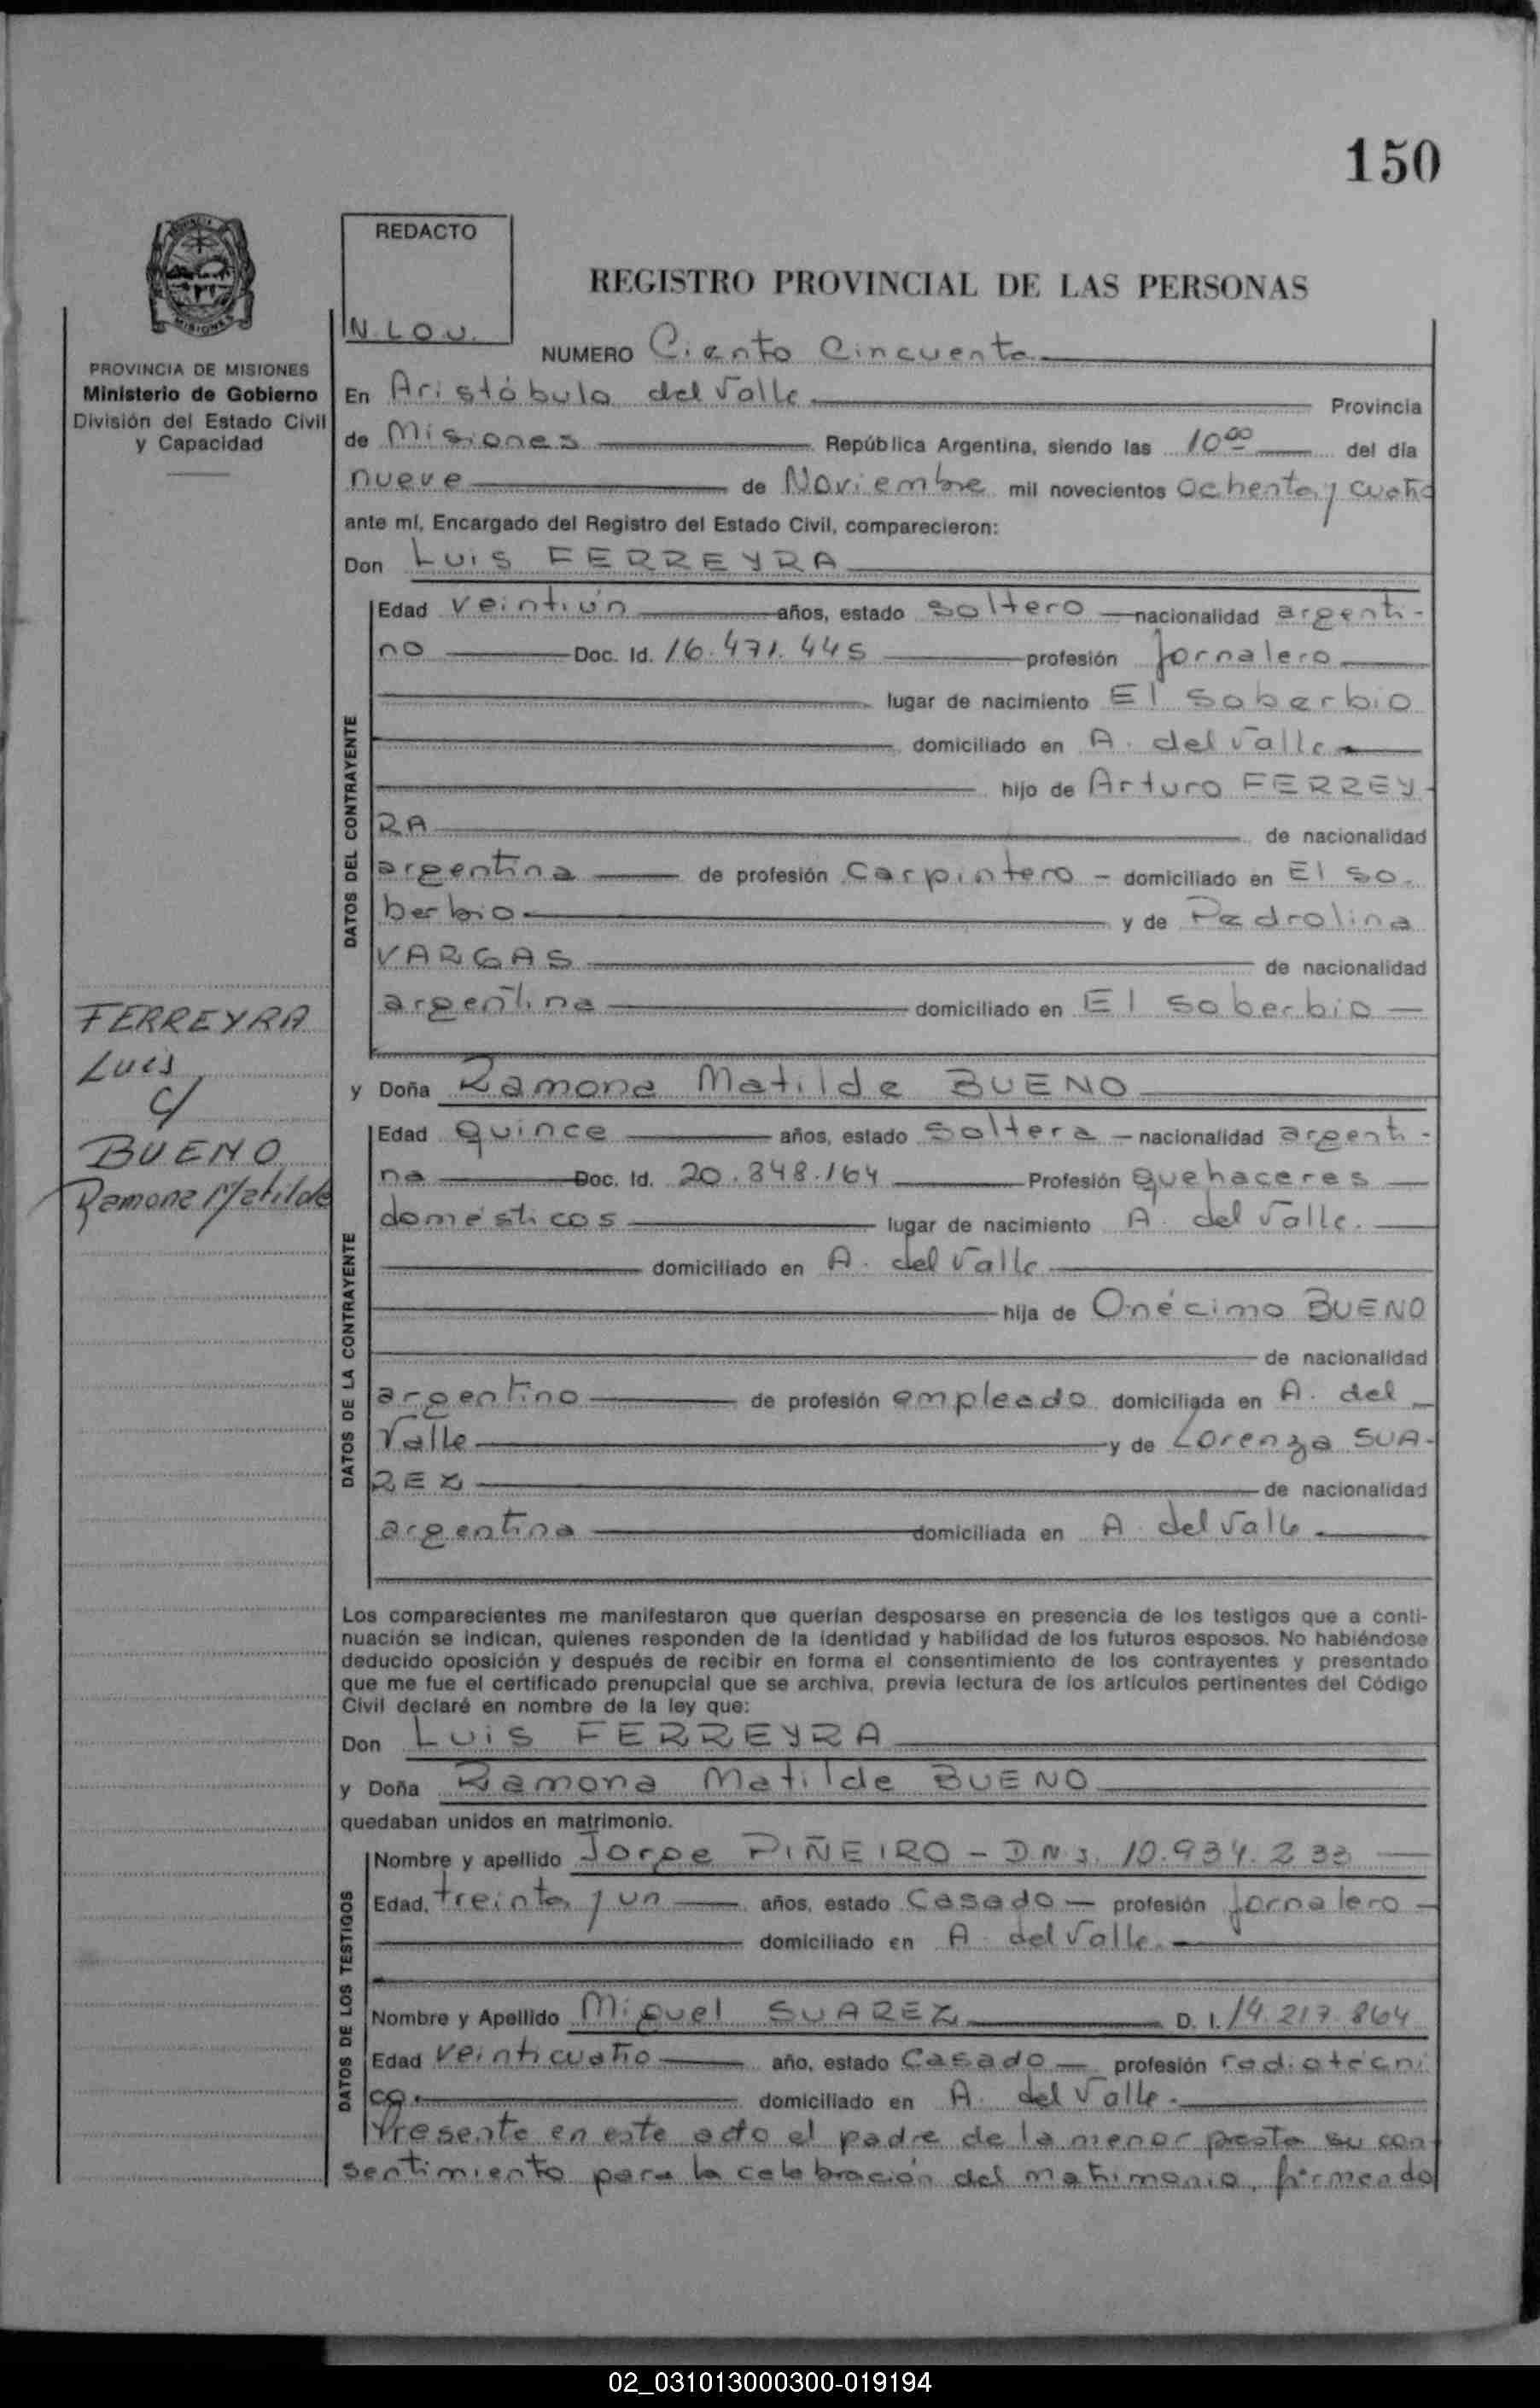 150
REDACTO
N. LOU.
REGISTRO PROVINCIAL DE LAS PERSONAS
PROVINCIA DE MISIONES
Ministerio de Gobierno
División del Estado Civil
y Capacidad
NUMERO Ciento Cincuenta
En Aristóbulo del Valle Provincia
de Misiones República Argentina, siendo las 10 00 del día
nueve de Noviembre mil novecientos ochenta y cuatro
ante mí, Encargado del Registro del Estado Civil, comparecieron:
Don Luis FERREYRA
DATOS DEL CONTRAYENTE
Edad veintiún años, estado soltero nacionalidad argenti-
no Doc. Id. 16.471.445 profesión jornalero
lugar de nacimiento El Soberbio
domiciliado en A. del Valle
hijo de Arturo FERREY-
RA de nacionalidad
argentina de profesión Carpintero - domiciliado en El So-
berbio y de Pedrolina
VARGAS de nacionalidad
argentina domiciliado en El Soberbio
FERREYRA
Luis
c/
BUENO
Ramona Matilde
y Doña Ramona Matilde BUENO
DATOS DE LA CONTRAYENTE
Edad quince años, estado soltera - nacionalidad argenti-
na Doc. Id. 20.848.164 Profesión quehaceres
domésticos lugar de nacimiento A. del Valle.
domiciliado en A. del Valle
hija de Onécimo BUENO
de nacionalidad
argentino de profesión empleado domiciliada en A. del
Valle y de Lorenza SUA-
REZ de nacionalidad
argentina domiciliada en A. del Valle
Los comparecientes me manifestaron que querían desposarse en presencia de los testigos que a conti-
nuación se indican, quienes responden de la identidad y habilidad de los futuros esposos. No habiéndose
deducido oposición y después de recibir en forma el consentimiento de los contrayentes y presentado
que me fue el certificado prenupcial que se archiva, previa lectura de los artículos pertinentes del Código
Civil declaré en nombre de la ley que:
Don Luis FERREYRA
y Doña Ramona Matilde BUENO
quedaban unidos en matrimonio.
DATOS DE LOS TESTIGOS
Nombre y apellido Jorge PIÑEIRO - D.N.I. 10.934.233
Edad. treinta y un años, estado Casado - profesión jornalero
domiciliado en A. del Valle.
Nombre y Apellido Miguel SUAREZ D. I. 14.217.864
Edad veinticuatro año, estado Casado - profesión radiotécni
co. domiciliado en A. del Valle.
Presente en este acto el padre de la menor presta su con
sentimiento para la celebración del matrimonio, firmando
02_031013000300-019194